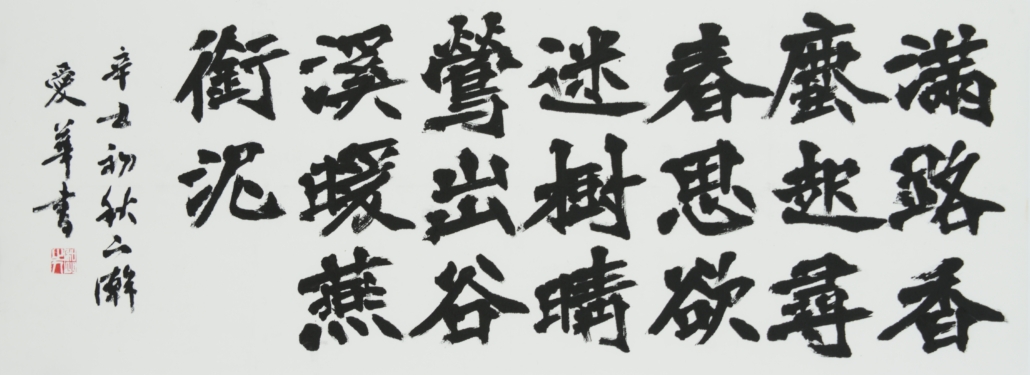 满路香
麈趂尋
春思欲
迷樹晴
鶯出谷
溪暖燕
銜泥
辛丑初秋上澣
愛華書